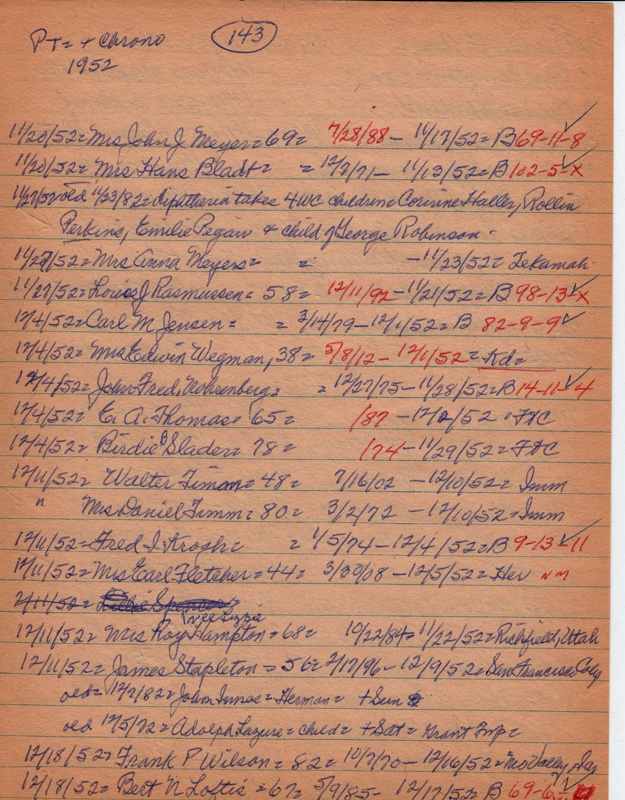 PT = + Chrono (143)
1952
11/20/52 = Mrs John J Meyer = 69 = 7/28/88 - 11/17/52 = B 69-11-8
11/20/52 = Mrs Hans Bladt = = 12/2/71 - 11/13/52 = B 102-5-x
11/27/52 old 11/23/82 = diptheria takes 4 WC children = Corinne Haller, Rollin
Perkins, Emilie Pegaw + child of George Robinson.
11/27/52 = Mrs Anna Meyers = = - 11/23/52 = Tekamah.
11/27/52 = Louise J Rasmussen = 58 = 12/11/92 - 11/21/52 = B 98-13-x
12/4/52 = Carl M Jensen = = 3/14/79 - 12/1/52 = B 82-9-9
12/4/52 = Mrs Edwin Wegman, 38 = 5/8/12 - 12/1/52 = Kd =
12/4/52 = John Fred, = = 12/27/75 - 11/28/52 = B 14-11-4
12/4/52 = E. A. Thomas = 65 = /87 - 12/2/52 = FtC
12/4/52 = Birdie Slader = 78 = /74 - 11/29/52 = FtC
12/11/52 = Walter Timm = 48 = 7/16/02 - 12/10/52 = Imm
" Mrs Daniel Timm = 80 = 3/2/72 - 12/10/52 = Imm
12/11/52 = Fred I. Krogh = = 1/5/74 - 12/4/52 = B 9-13-11
12/11/52 = Mrs Earl Fletcher = 44 = 3/30/08 - 12/5/52 = Her NM
12/11/52 =
12/11/52 = Mrs Roy Hampton = 68 = 10/22/84 = 11/22/52 = Richfield, Utah
12/11/52 = James Stapleton = 56 = 2/17/96 - 12/9/52 = San Francisco
old = 12/7/82 = John Innes = Herman = + Sun
old 12/5/72 = Adolph Lazure = child = + Sat = Grant Twp =
12/18/52 = Frank P Wilson = 82 = 10/7/70 - 12/16/52 = Mo Valley,
12/18/52 = Bert N Loftis = 67 = 5/9/85 - 12/17/52 = B 69-6-